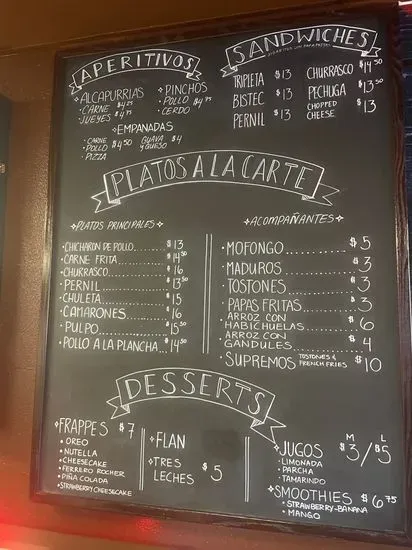 APERITIVOS
ALCAPURRIAS
CARNE $4.25
JUEYES $4.75
PINCHOS
POLLO $4.75
CERDO
EMPANADAS
CARNE
POLLO $4.50
PIZZA
GUAVA $4
Y QUESO
SANDWICHES
TRIPLETA $13
BISTEC $13
PERNIL $13
CHURRASCO $14.50
PECHUGA $13.50
CHOPPED CHEESE $13
PLATOS A LA CARTE
PLATOS PRINCIPALES
CHICHARON DE POLLO $13
CARNE FRITA $14.50
CHURRASCO $16
PERNIL $13.50
CHULETA $15
CAMARONES $16
PULPO $15.50
POLLO A LA PLANCHA $14.50
ACOMPAÑANTES
MOFONGO $5
MADUROS $3
TOSTONES $3
PAPAS FRITAS $3
ARROZ CON
HABICHUELAS $6
ARROZ CON
GANDULES $4
SUPREMOS TOSTONES & FRENCH FRIES $10
DESSERTS
FRAPPES $7
OREO
NUTELLA
CHEESECAKE
FERRERO ROCHER
PIÑA COLADA
STRAWBERRY CHEESECAKE
FLAN
TRES
LECHES $5
M L
JUGOS $3/$5
LIMONADA
PARCHA
TAMARINDO
SMOOTHIES $6.75
STRAWBERRY-BANANA
MANGO